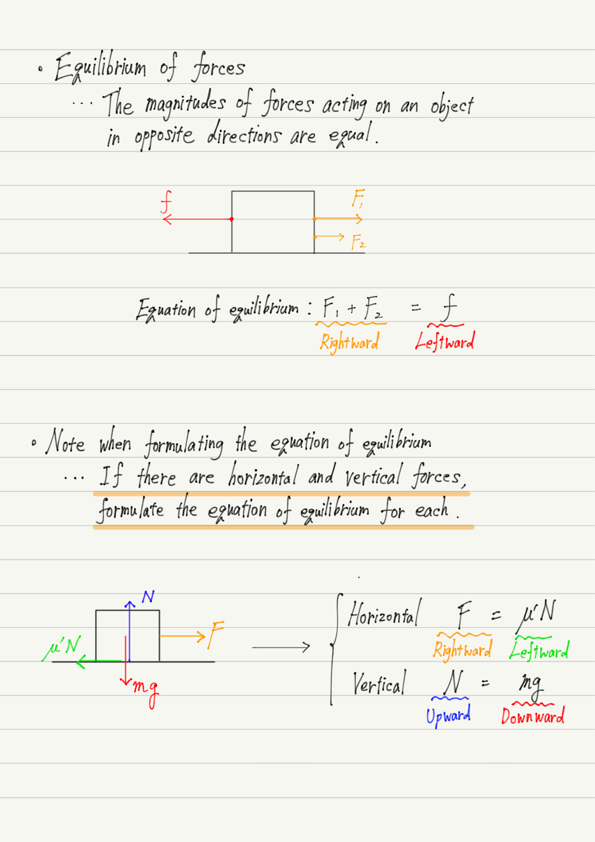 • Equilibrium of forces
... The magnitudes of forces acting on an object
in opposite directions are equal.
f
F₁
F₂
Equation of equilibrium : F₁ + F₂ = f
Rightward Leftward
• Note when formulating the equation of equilibrium
... If there are horizontal and vertical forces,
formulate the equation of equilibrium for each.
N
F
μ'N
mg
Horizontal F = μ'N
Rightward Leftward
Vertical N = mg
Upward Downward